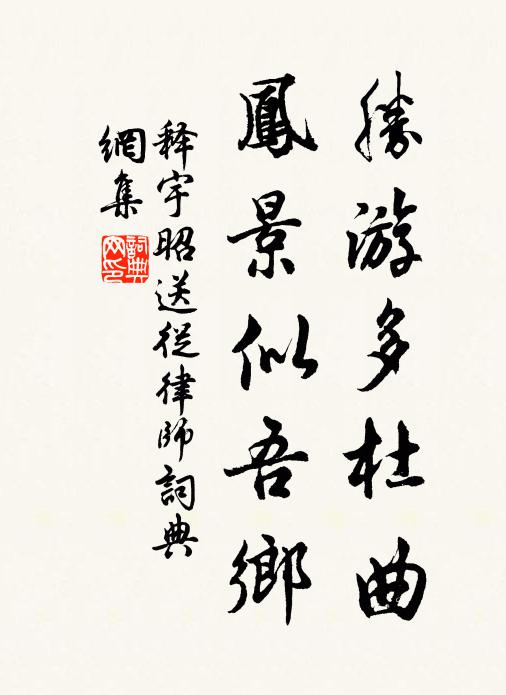 勝游多杜曲
鳳景似吾鄉
释宇昭送從律師詞典
網集
詞典网印